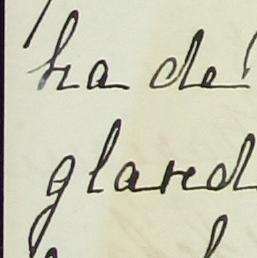 ha de
glared